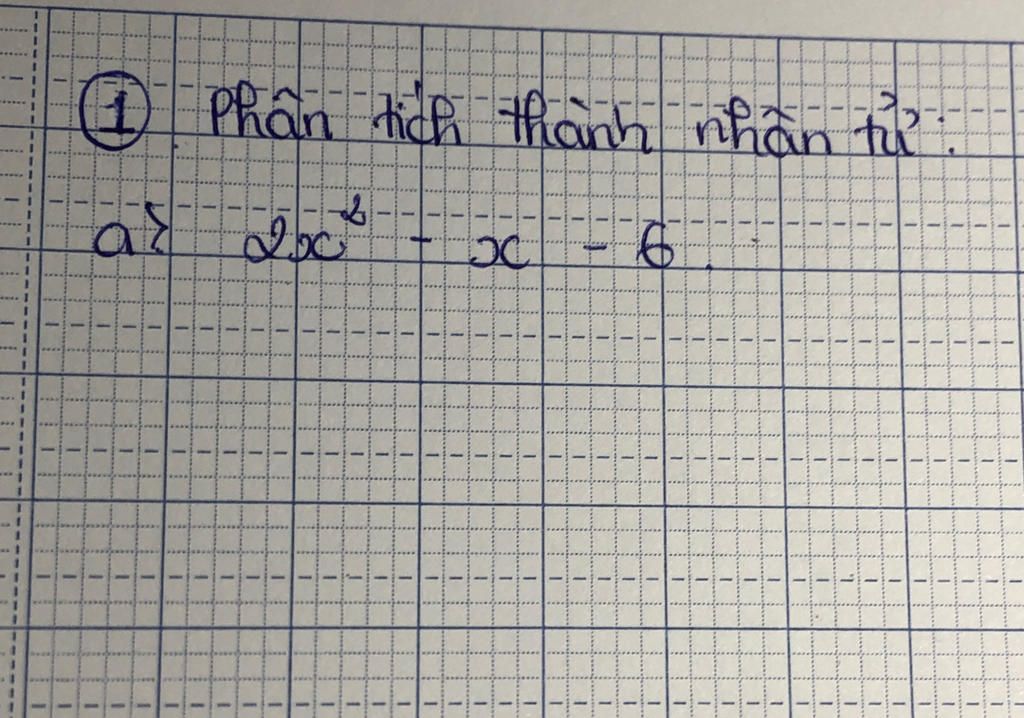 ① Phân tích thành nhân tử:
a> 2x² - x - 6.